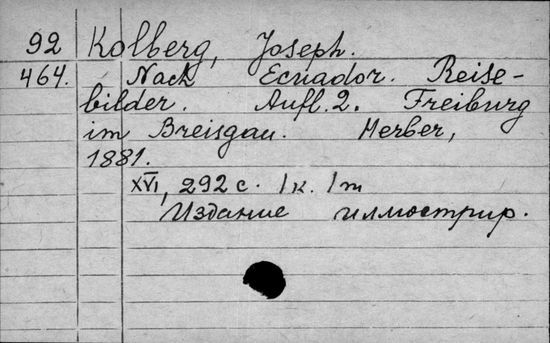 92 Kolberg, Joseph.
464. Nach Ecuador. Reise-
bilder. Aufl. 2. Freiburg
im Breisgau. Herber,
1881.
XVI, 292 с. 1 к. 1 т
Издание иллюстрир.